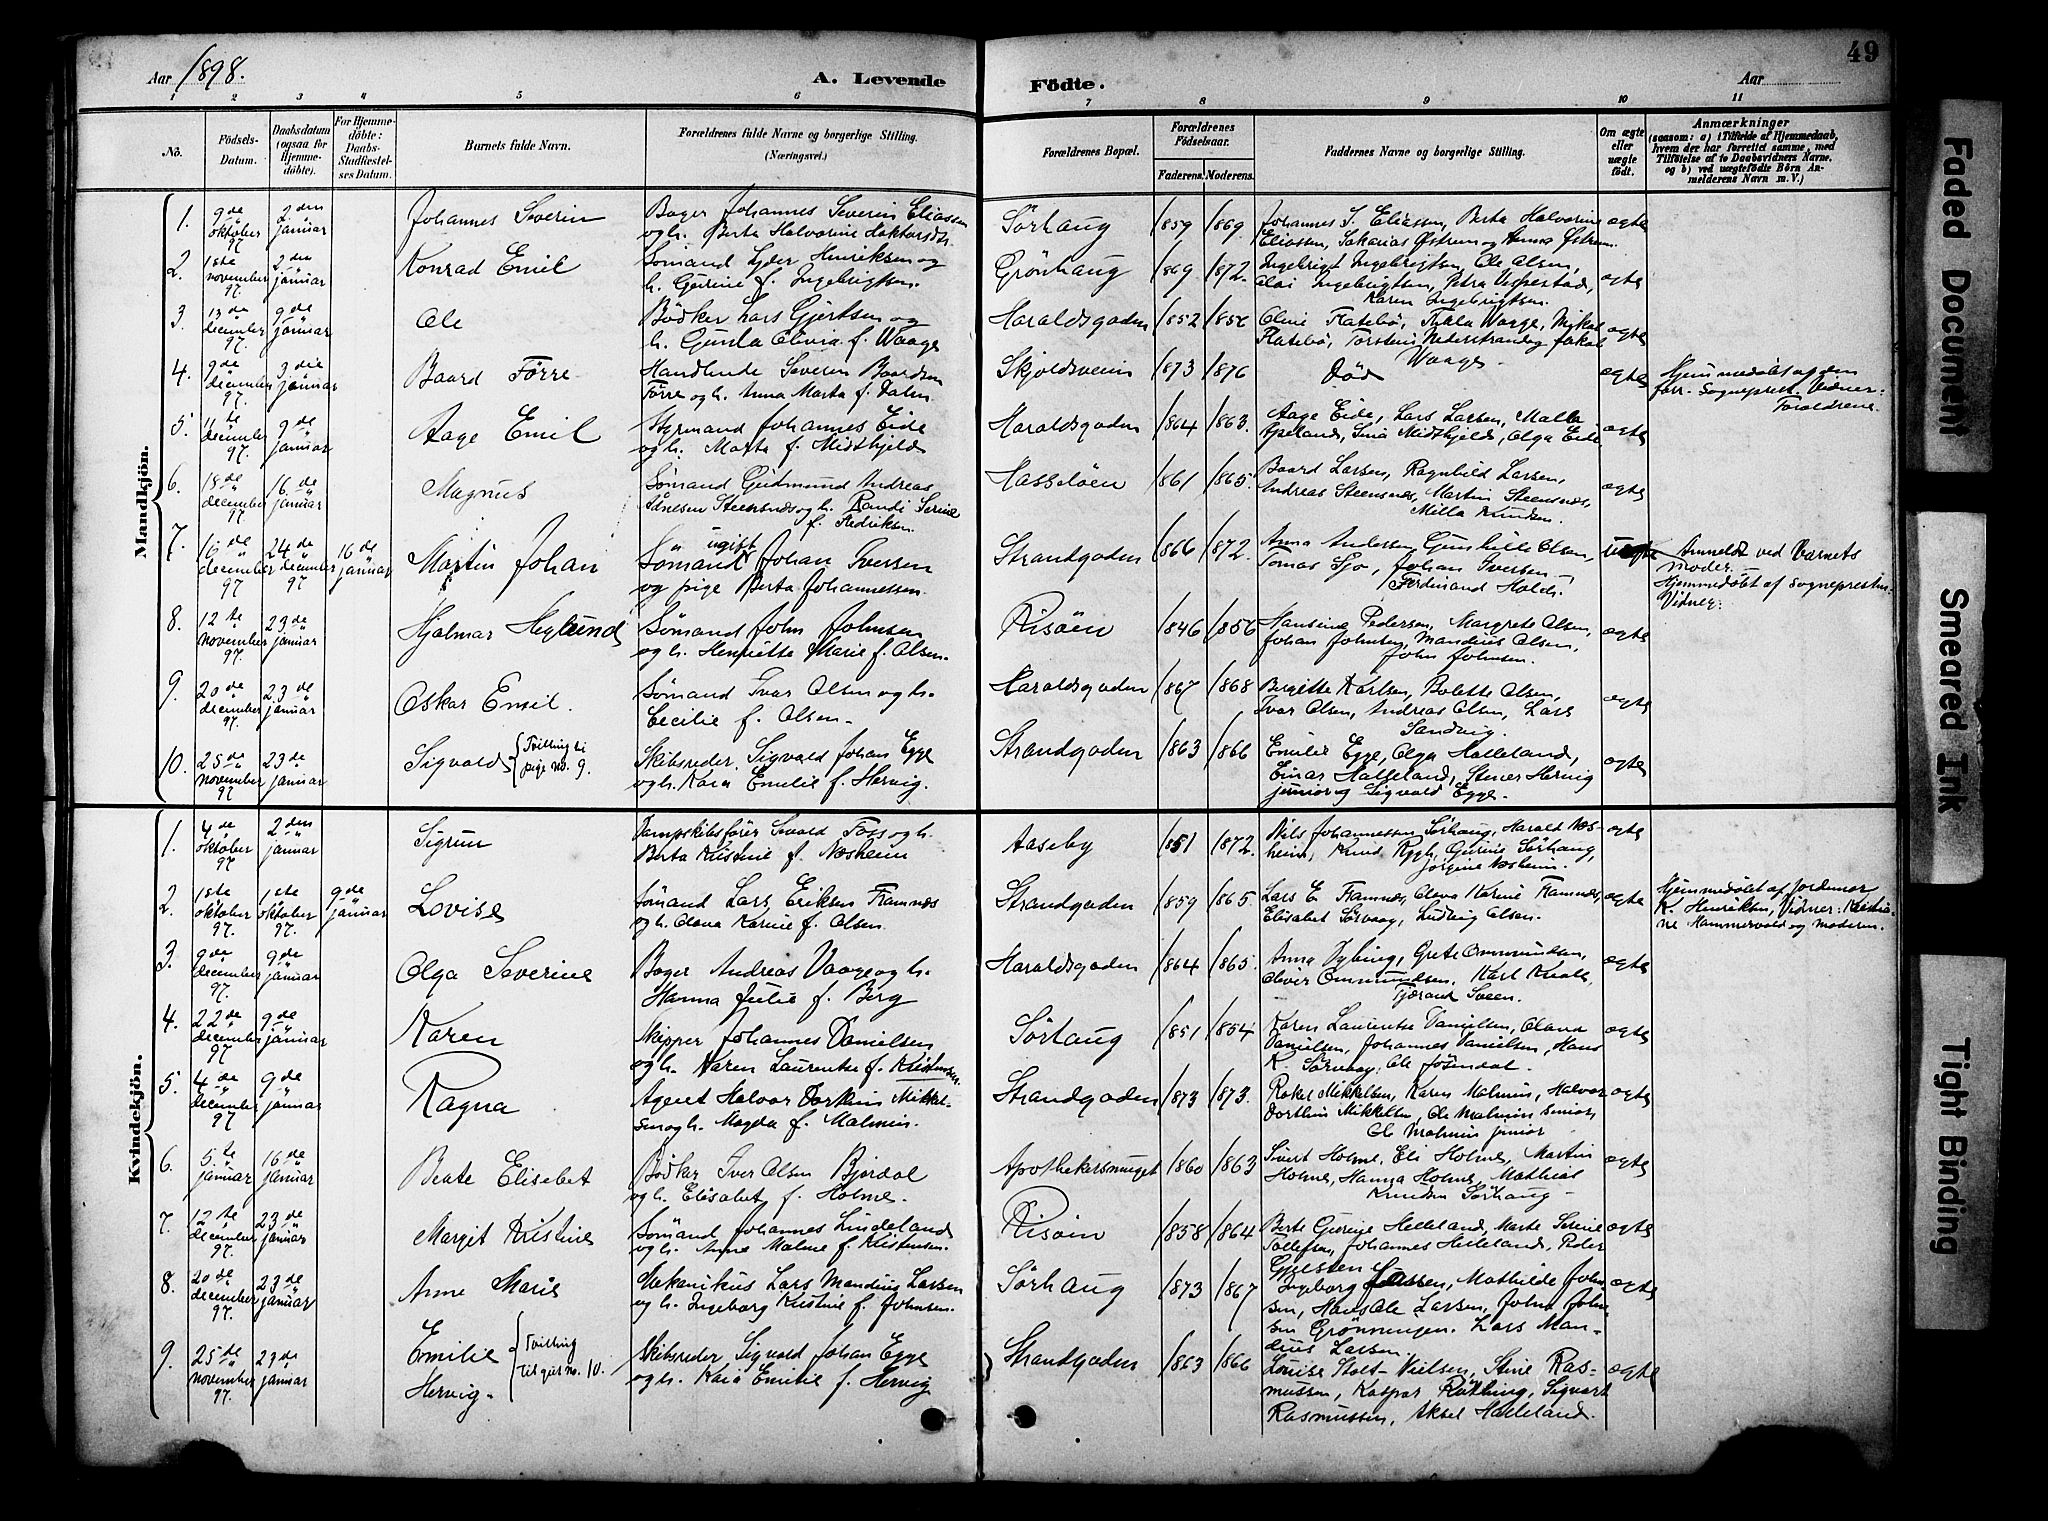 Aar 1898.
A. Levende
Födte.
Aar
49
1 2 3 4 5 6 7 8 9 10 11
No.
Födsels-Datum.
Daabsdatum (ogsaa for Hjemmedöbte).
For Hjemmedöbte: Daabs-Stadfæstelses Datum.
Barnets fulde Navn.
Forældrenes fulde Navne og borgerlige Stilling. (Næringsvei.)
Forældrenes Bopæl.
Forældrenes Födselsaar.
Faderens. Moderens.
Faddernes Navne og borgerlige Stilling.
Om ægte eller uægte födt.
Anmærkninger
(saasom: a) i Tilfælde af Hjemmedaab, hvem der har forrettet samme, med Tilföielse af to Daabsvidners Navne, og b) ved uægtefödte Börn Anmelderens Navn m. V.)
Mandkjön.
1. 9de oktober 97. 2den januar Johannes Severin
Bager Johannes Severin Eliassen
og h. Berta Halvorine
Sörhaug 1859 1869.
Johannes S. Eliassen, Berta Halvorine
Eliassen, Sakarias Østrem og Anna Østrem
ægte
2. 1ste november 97. 2den januar Konrad Emil
Sömand Lyder Henriksen og
h. Gurine f. Ingebrigtsen.
Grönhaug 1869 1872.
Ingebrigt Ingebrigtsen, Ole Olsen,
Ingebrigtsen, Petra
Karen Ingebrigtsen.
ægte
3. 13de december 97. 9de januar Ole
Bödker Lars Gjertsen og
h. Gurda Olivia f. Waage
Haraldsgaden 1852
Oline Flatebö, Waage,
Flatebö, Torstein Jakob
Waage
ægte
4. 9de december 97. 3die januar Baard Förre
Handlende Severin Baardsen
Förre og h. Anna Marta f. Dalen
Skjoldsveien 1873 1876
Död
ægte
Hjemmedöbt af den
forr. Sogneprest. Vidner:
Foreldrene.
5. 11te december 97. 9de januar Aage Emil
Styrmand Johannes Eide
og h. Marta f. Midthjeld
Haraldsgaden 1864 1863.
Aage Eide, Lars Larsen, Malla
Apeland, Midthjeld, Olga Eide
ægte
6. 18de december 97. 16de januar Magnus
Sömand Gudmund Andreas
Steensnæs og h. Randi Serine
f. Fredriksen.
Hasselöen 1861 1865.
Baard Larsen, Ragnhild Larsen,
Andreas Steensnæs, Martin Steensnæs,
Milla Knudsen.
ægte
7. 16de december 97 24de december 97 16de januar Martin Johan
ugift
Sömand Johan Iversen
og pige Berta Johannessen.
Strandgaden 1866 1872.
Anna Andersen, Olsen,
Tomas Johan Iversen
Ferdinand
Anmeldt ved Barnets
Moder.
Hjemmedöbt af sognepresten.
Vidner:
8. 12te november 97. 23de januar Hjalmar Heglund
Sömand John Johnsen
og h. Henriette Marie f. Olsen.
Risöen 1846 1856
Hansine Pedersen, Margrete Olsen,
Johan Johnsen, Mandius Olsen,
John Johnsen.
ægte
9. 20de december 97. 23de januar Oskar Emil.
Sömand Ivar Olsen og h.
Cecilie f. Olsen.
Haraldsgaden 1867 1868
Birgitte Karlsen, Bolette Olsen,
Ivar Olsen, Andreas Olsen, Lars
Sandvig.
ægte
10. 25de november 97 23de januar Sigvald {Tvilling til pige no. 9.
Skibsreder Sigvald Johan Egge
og h. Kaia Emilie f. Hervig.
Strandgaden 1863 1866
Emilie Egge, Olga Halleland,
Einar Halleland, Stener Hervig
junior og Sigvald Egge.
ægte
Kvindekjön.
1. 4de oktober 97. 2den januar Sigrun
Dampskibsförer Sevald Foss og h.
Berta Kristine f. Næsheim
Aaseby 1851 1872.
Nils Johannessen Sörhaug, Harald Næs-
heim, Knud Rygh, Gurine Sörhaug,
Jörgine Næsheim.
ægte
2. 18de oktober 97. 1ste oktober 97. 9de januar Lovise
Sömand Lars Eriksen Framnæs
og h. Olava Karine f. Olsen.
Strandgaden 1859 1865.
Lars E. Framnæs, Olava Karine Framnæs,
Elisabet Sörvaag, Ludvig Olsen.
ægte
Hjemmedöbt af Jordemor
K. Henriksen, Vidner: Kristia-
ne Hammervold og moderen.
3. 9de december 97. 9de januar Olga Severine
Bager Andreas Vaage og h.
Hanna Julie f. Berg
Haraldsgaden 1864 1865.
Anna Grete Ommundsen,
Oliver Ommundsen, Karl
Tjærand Sveen.
ægte
4. 22de december 97 9de januar Karen
Skipper Johannes Danielsen
og h. Karen Laurentse f. Kristensen.
Sörhaug 1851 1854.
Karen Laurentse Danielsen,
Danielsen, Johannes Danielsen, Hans
K. Sörvaag, Ole Jösendal.
ægte
5. 4de december 97 9de januar Ragna
Agent Halvor Dorthin Mikkel-
sen og h. Magda f. Malmin.
Strandgaden 1873 1873.
Rakel Mikkelsen, Karen Malmin, Halvor
Dorthin Mikkelsen, Ole Malmin senior,
Ole Malmin junior
ægte
6. 5te januar 16de januar Beate Elisabet
Bödker Iver Olsen Bjordal
og h. Elisabet f. Holme.
Apothekersmuget 1860 1863
Sivert Holme, Eli Holme, Martin
Holme, Hanna Holme, Mathias
Knudsen Sörhaug
ægte
7. 12te december 97. 23de januar Margit Kristine
Sömand Johannes Lindeland
og h. Anne Malene f. Kristensen.
Risöen 1858 1864
Berte Gurine Helleland, Marte Serine
Tollefsen, Johannes Helleland, Peder
Gjelsten
ægte
8. 20de december 97. 23de januar Anne Marie
Mekanikus Lars Mandius Larsen
og h. Ingeborg Kristine f. Johnsen.
Sörhaug 1873 1867
Ingeborg Larsen, Mathilde John-
sen, Hans Ole Larsen, John John-
sen Grönningen. Lars Man-
dius Larsen.
ægte
9. 25de november 97. 23de januar Emilie Hervig. {Tvilling til gut no. 10.
Skibsreder Sigvald Johan Egge
og h. Kaia Emilie f. Hervig
Strandgaden 1863 1866
Louise Stolt-Nielsen, Stine Ras-
mussen, Kaspar Röthing, Sigvart
Rasmussen, Aksel Halleland.
ægte
Faded Document
Smeared Ink
Tight Binding